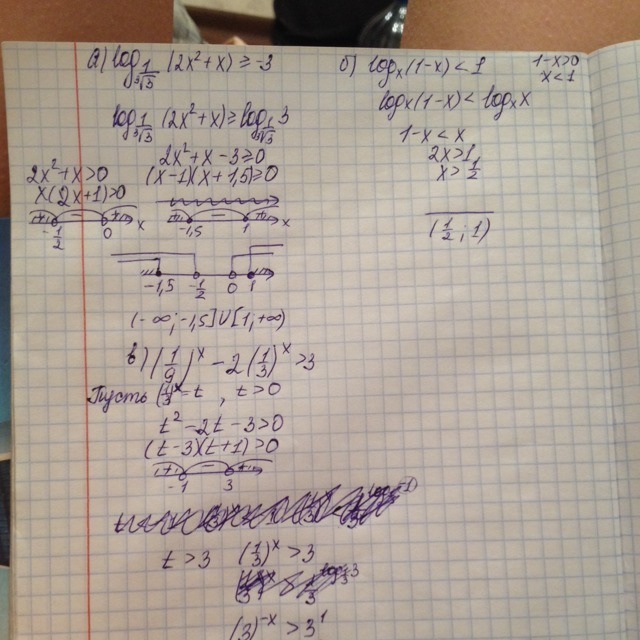 а) log_{1/∛3} (2x²+x) ≥ -3
log_{1/∛3} (2x²+x) ≥ log_{1/∛3} 3
2x²+x-3≥0
(x-1)(x+1,5)≥0
2x²+x>0
x(2x+1)>0
+ - + x
-1/2 0
+ - + x
-1,5 1
-1,5 -1/2 0 1
(-∞;-1,5]∪[1;+∞)
б) log_x(1-x)<1
1-x>0
x<1
log_x(1-x)<log_x x
1-x<x
2x>1
x>1/2
(1/2;1)
в) (1/9)^x - 2(1/3)^x >3
Пусть (1/3)^x=t, t>0
t²-2t-3>0
(t-3)(t+1)>0
+ - +
-1 3
t>3 (1/3)^x >3
(3)^{-x} > 3^1